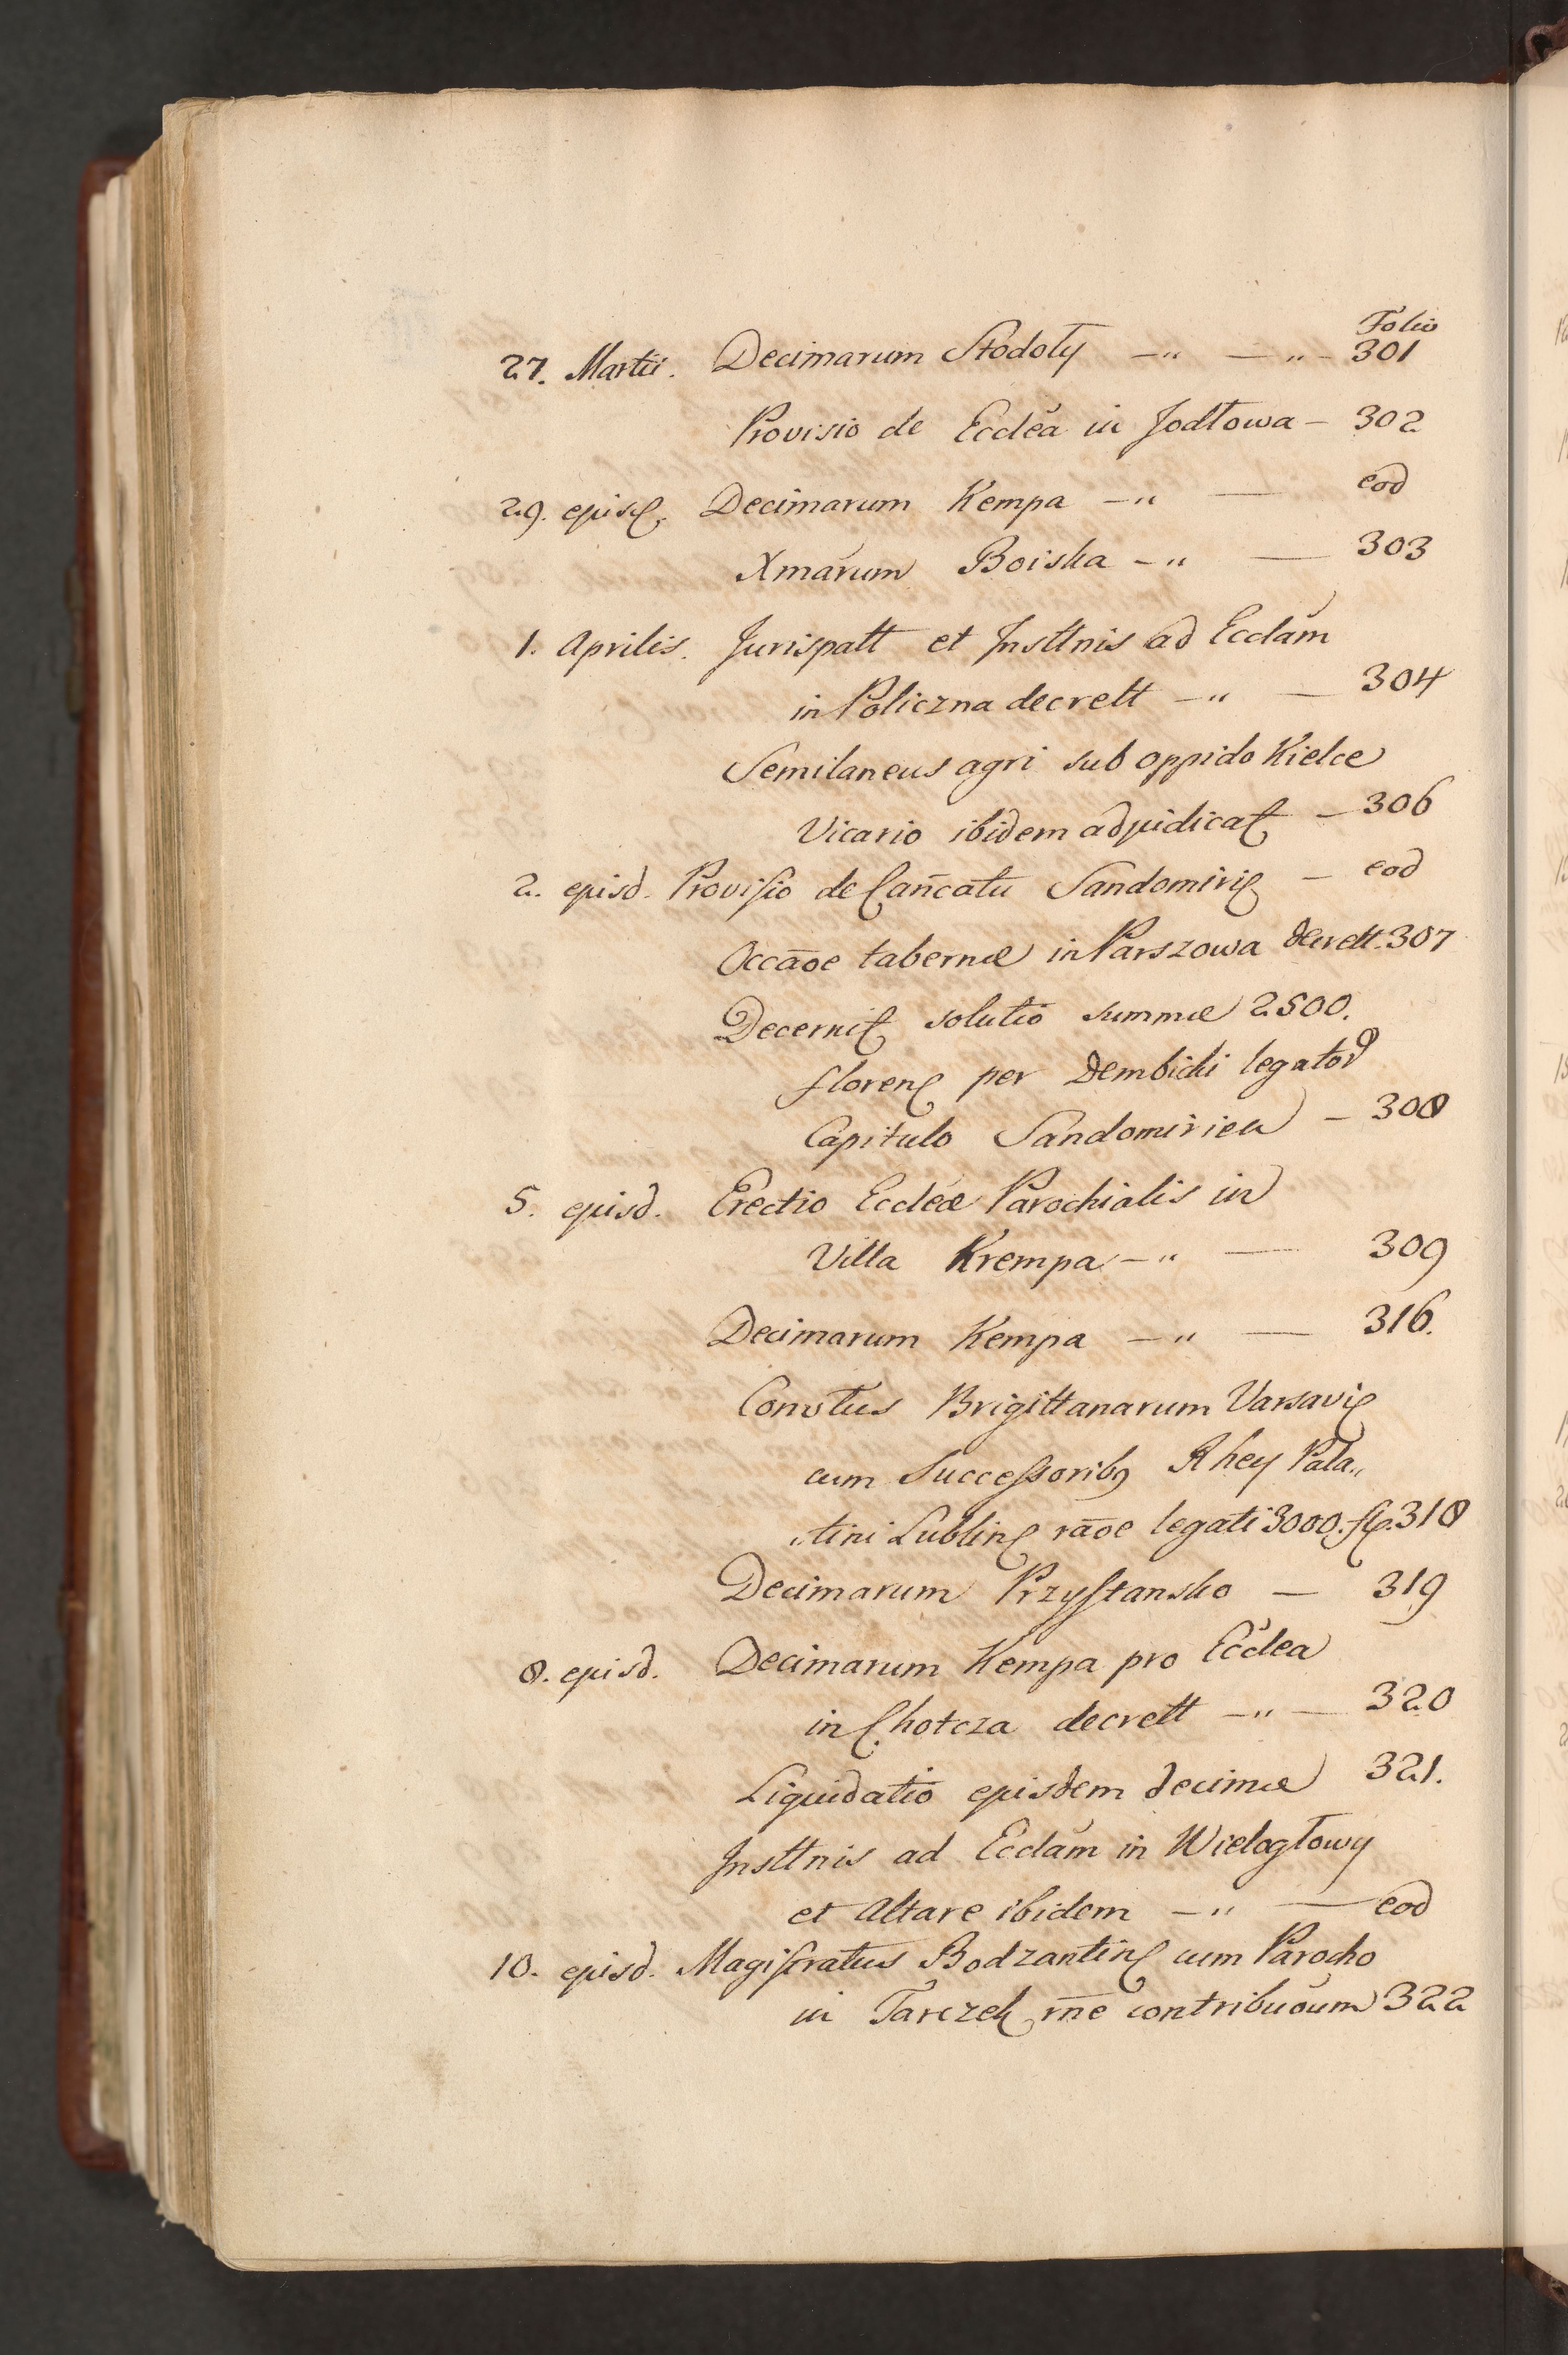 Folio
27. Martii. Decimarum Stodoły —„ —„— 301
Provisio de Ecclea in Jodłowa — 302
29. ejusd. Decimarum Kempa —„ — eod
Xmarum Boiska —„ — 303
1. Aprilis. Jurispatt et Insttnis ad Ecclam
in Policzna decrett —„ — 304
Semilaneus agri sub oppido Kielce
Vicario ibidem adjudicat — 306
2. ejusd. Provisio de Cancatu Sandomiri — eod
Occaoe tabernæ in Parszowa decrett. 307
Decernit solutio summæ 2500.
floren per Dembicki legator
Capitulo Sandomirien — 308
5. ejusd. Erectio Eccleæ Parochialis in
Villa Krempa —„ — 309
Decimarum Kempa —„ — 316.
Convtus Brigittanarum Varsavi
cum Successorib9 Rhey Pala„
„tini Lublin raoe legati 3000. fl. 318
Decimarum Przystansko — 319
8. ejusd. Decimarum Kempa pro Ecclea
in Chotcza decrett —„— 320
Liquidatio ejusdem decimæ 321.
Insttnis ad Ecclam in Wielogłowy
et Altare ibidem —„ — eod
10. ejusd. Magistratus Bodzantin cum Parocho
in Tarczek rne contribuoum 322